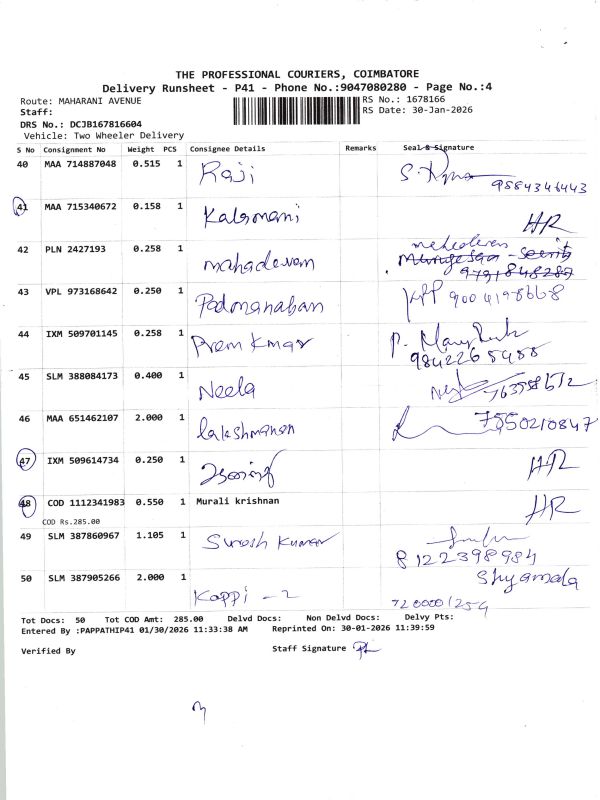 THE PROFESSIONAL COURIERS, COIMBATORE
Delivery Runsheet - P41 - Phone No.:9047080280 - Page No.:4
Route: MAHARANI AVENUE RS No.: 1678166
Staff: RS Date: 30-Jan-2026
DRS No.: DCJB167816604
Vehicle: Two Wheeler Delivery
S No Consignment No Weight PCS Consignee Details Remarks Seal & Signature
40 MAA 714887048 0.515 1 Raji 9884346443
41 MAA 715340672 0.158 1 Kalamani HR
42 PLN 2427193 0.258 1 mahadevan
43 VPL 973168642 0.250 1 Padmanaban
44 IXM 509701145 0.258 1 Prem Kumar
45 SLM 388084173 0.400 1 Neela
46 MAA 651462107 2.000 1 lakshmanan 7550210847
47 IXM 509614734 0.250 1 HR
48 COD 1112341983 0.550 1 Murali krishnan HR
COD Rs.285.00
49 SLM 387860967 1.105 1 Suresh Kumar 8122398984
50 SLM 387905266 2.000 1 Kappi - 2 Shyamala
Tot Docs: 50 Tot COD Amt: 285.00 Delvd Docs: Non Delvd Docs: Delvy Pts:
Entered By :PAPPATHIP41 01/30/2026 11:33:38 AM Reprinted On: 30-01-2026 11:39:59
Verified By Staff Signature